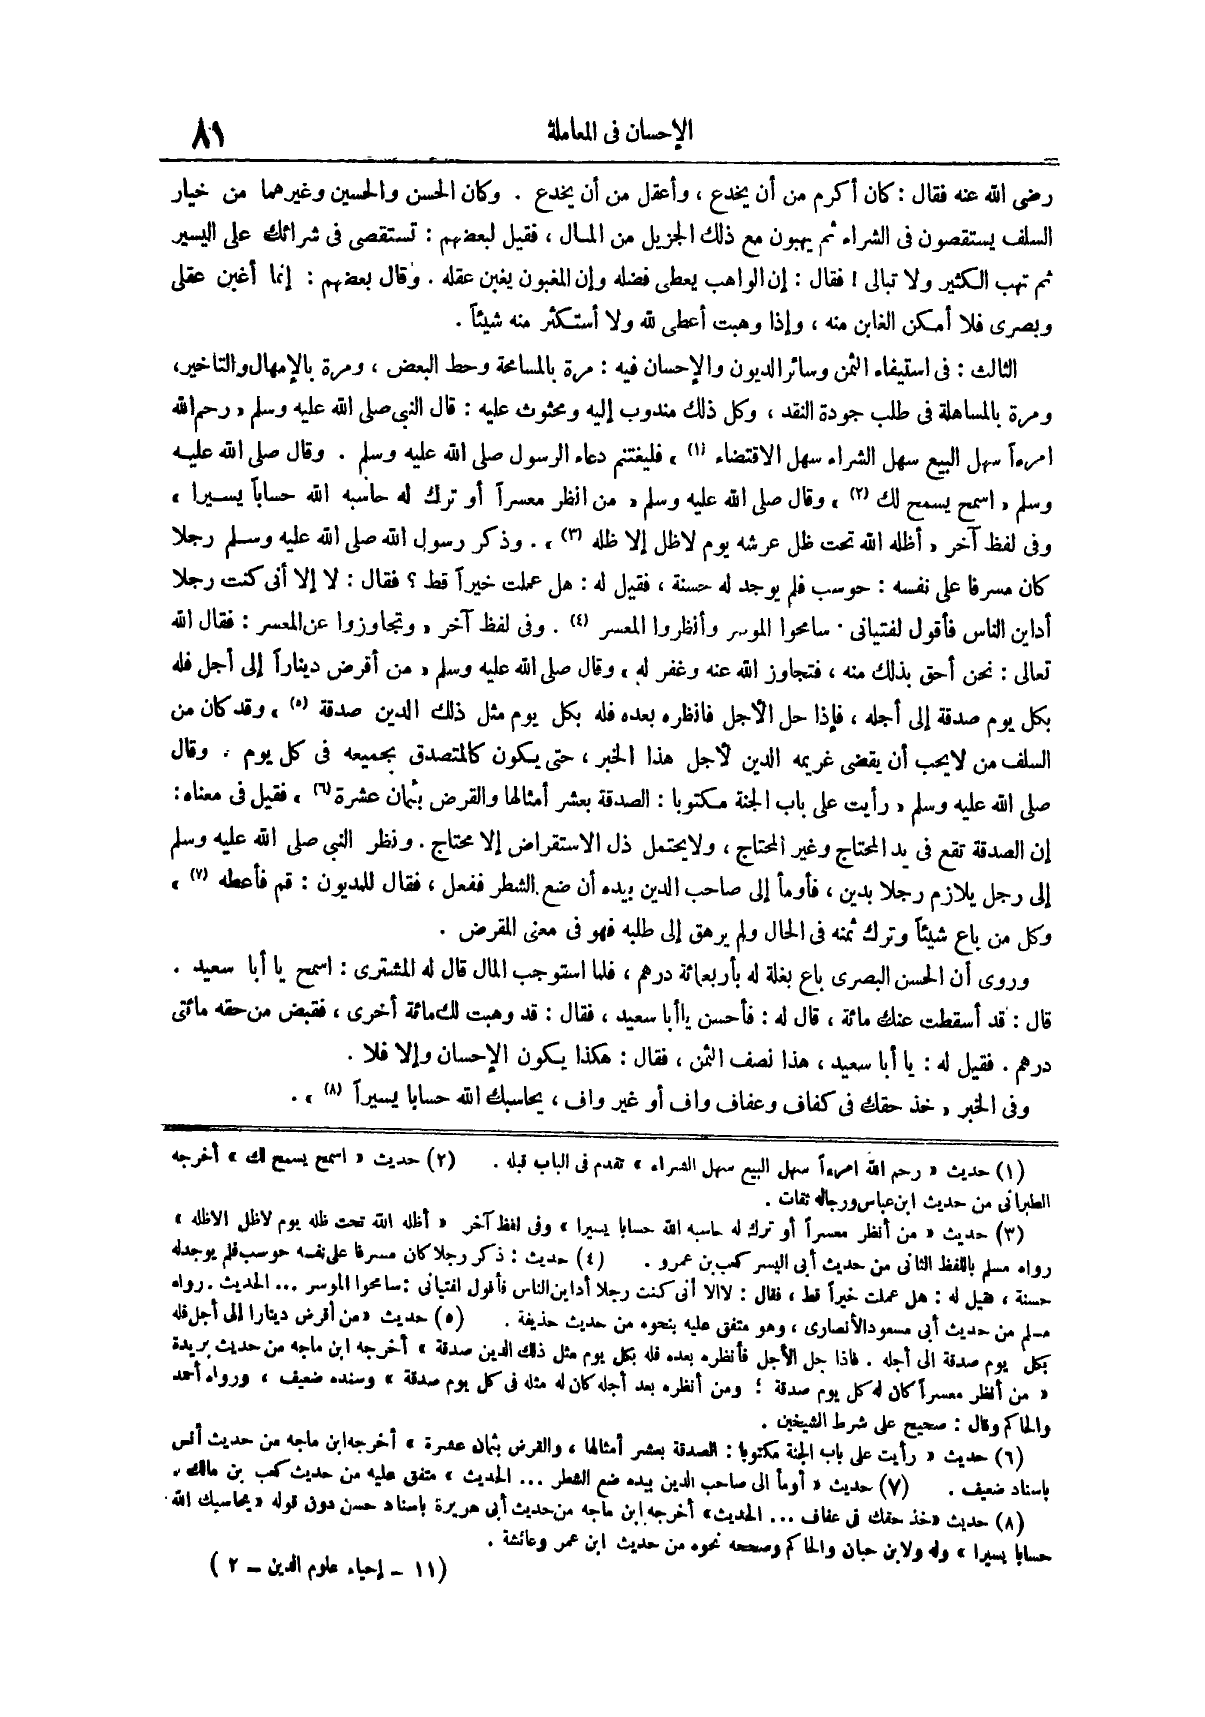 الإحسان فى المعاملة
٨١
رضى الله عنه فقال : كان أكرم من أن يخدع ، وأعقل من أن يخدع . وكان الحسن والحسين وغيرهما من خيار
السلف يستقصون فى الشراء ثم يهبون مع ذلك الجزيل من المال ، فقيل لبعضهم : تستقصى فى شرائك على اليسير
ثم تهب الكثير ولا تبالى ! فقال : إن الواهب يعطى فضله وإن المغبون يغبن عقله . وقال بعضهم : إنما أغبن عقلى
وبصرى فلا أمكن الغابن منه ، وإذا وهبت أعطى لله ولا أستكثر منه شيئاً .
الثالث : فى استيفاء الثمن وسائر الديون والإحسان فيه : مرة بالمسامحة وحط البعض ، ومرة بالإمهال والتأخير،
ومرة بالمساهلة فى طلب جودة النقد ، وكل ذلك مندوب إليه ومحثوث عليه : قال النبي صلى الله عليه وسلم « رحم الله
امرءاً سهل البيع سهل الشراء سهل الاقتضاء (١) » فليغتنم دعاء الرسول صلى الله عليه وسلم . وقال صلى الله عليه
وسلم « اسمح يسمح لك (٢) » وقال صلى الله عليه وسلم « من انظر معسراً أو ترك له حاسبه الله حساباً يسيرا »
وفى لفظ آخر « أظله الله تحت ظل عرشه يوم لاظل إلا ظله (٣) » . وذكر رسول الله صلى الله عليه وسلم رجلا
كان مسرفا على نفسه : حوسب فلم يوجد له حسنة ، فقيل له : هل عملت خيراً قط ؟ فقال : لا إلا أنى كنت رجلا
أداين الناس فأقول لفتيانى : سامحوا الموسر وأنظروا المعسر (٤) . وفى لفظ آخر « وتجاوزوا عن المعسر : فقال الله
تعالى : نحن أحق بذلك منه ، فتجاوز الله عنه وغفر له » وقال صلى الله عليه وسلم « من أقرض ديناراً إلى أجل فله
بكل يوم صدقة إلى أجله ، فإذا حل الأجل فانظره بعده فله بكل يوم مثل ذلك الدين صدقة (٥) » وقد كان من
السلف من لايحب أن يقضى غريمه الدين لأجل هذا الخبر ، حتى يكون كالمتصدق بجميعه فى كل يوم . وقال
صلى الله عليه وسلم « رأيت على باب الجنة مكتوبا : الصدقة بعشر أمثالها والقرض بثمان عشرة (٦) » فقيل فى معناه :
إن الصدقة تقع فى يد المحتاج وغير المحتاج ، ولايحتمل ذل الاستقراض إلا محتاج . ونظر النبي صلى الله عليه وسلم
إلى رجل يلازم رجلا بدين ، فأومأ إلى صاحب الدين بيده أن ضع الشطر ففعل ، فقال للمديون : قم فأعطه (٧) »
وكل من باع شيئاً وترك ثمنه فى الحال ولم يرهق إلى طلبه فهو فى معنى المقرض .
وروى أن الحسن البصرى باع بغلة له بأربعمائة درهم ، فلما استوجب المال قال له المشترى : اسمح يا أبا سعيد .
قال : قد أسقطت عنك مائة ، قال له : فأحسن ياأبا سعيد ، فقال : قد وهبت لك مائة أخرى ، فقبض من حقه مائتى
درهم . فقيل له : يا أبا سعيد ، هذا نصف الثمن ، فقال : هكذا يكون الإحسان وإلا فلا .
وفى الخبر « خذ حقك فى كفاف وعفاف واف أو غير واف ، يحاسبك الله حسابا يسيراً (٨) » .
(١) حديث « رحم الله امرءاً سهل البيع سهل الشراء » تقدم فى الباب قبله . (٢) حديث « اسمح يسمح لك » أخرجه
الطبرانى من حديث ابن عباس ورجاله ثقات .
(٣) حديث « من أنظر معسراً أو ترك له حاسبه الله حسابا يسيرا » وفى لفظ آخر « أظله الله تحت ظله يوم لاظل الاظله »
رواه مسلم باللفظ الثانى من حديث أبى اليسر كعب بن عمرو . (٤) حديث : ذكر رجلا كان مسرفا على نفسه حوسب فلم يوجد له
حسنة ، فقيل له : هل عملت خيراً قط ، فقال : لاالا أنى كنت رجلا أداين الناس فأقول لفتيانى : سامحوا الموسر ... الحديث . رواه
مسلم من حديث أبى مسعود الأنصارى ، وهو متفق عليه بنحوه من حديث حذيفة . (٥) حديث «من أقرض دينارا إلى أجل فله
بكل يوم صدقة الى أجله . فاذا حل الأجل فأنظره بعده فله بكل يوم مثل ذلك الدين صدقة » أخرجه ابن ماجه من حديث بريدة
« من أنظر معسراً كان له كل يوم صدقة ؛ ومن أنظره بعد أجله كان له مثله فى كل يوم صدقة » وسنده ضعيف ، ورواه أحمد
والحاكم وقال : صحيح على شرط الشيخين .
(٦) حديث « رأيت على باب الجنة مكتوبا : الصدقة بعشر أمثالها ، والقرض بثمان عشرة » أخرجه ابن ماجه من حديث أنس
باسناد ضعيف . (٧) حديث « أومأ الى صاحب الدين بيده ضع الشطر ... الحديث » متفق عليه من حديث كعب بن مالك .
(٨) حديث «خذ حقك فى عفاف ... الحديث» أخرجه ابن ماجه من حديث أبى هريرة باسناد حسن دون قوله «يحاسبك الله
حسابا يسيرا » وله ولابن حبان والحاكم وصححه نحوه من حديث ابن عمر وعائشة .
(١١ - إحياء علوم الدين - ٢ )